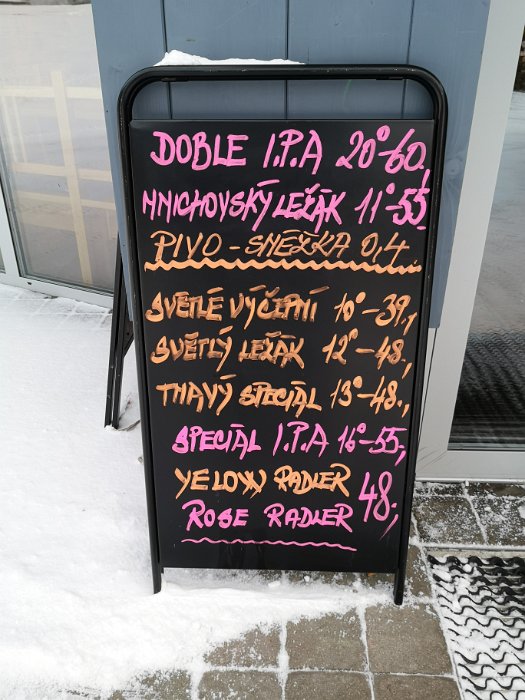 DOBLE I.P.A 20°-60,
MNICHOVSKÝ LEŽÁK 11°-55,
PIVO - SNĚŽKA 0,4
SVĚTLÉ VÝČEPNÍ 10°-39,
SVĚTLÝ LEŽÁK 12°-48,
TMAVÝ SPECIÁL 13°-48,
SPECIÁL I.P.A 16°-55,
YELOW RADLER
48,
ROSE RADLER